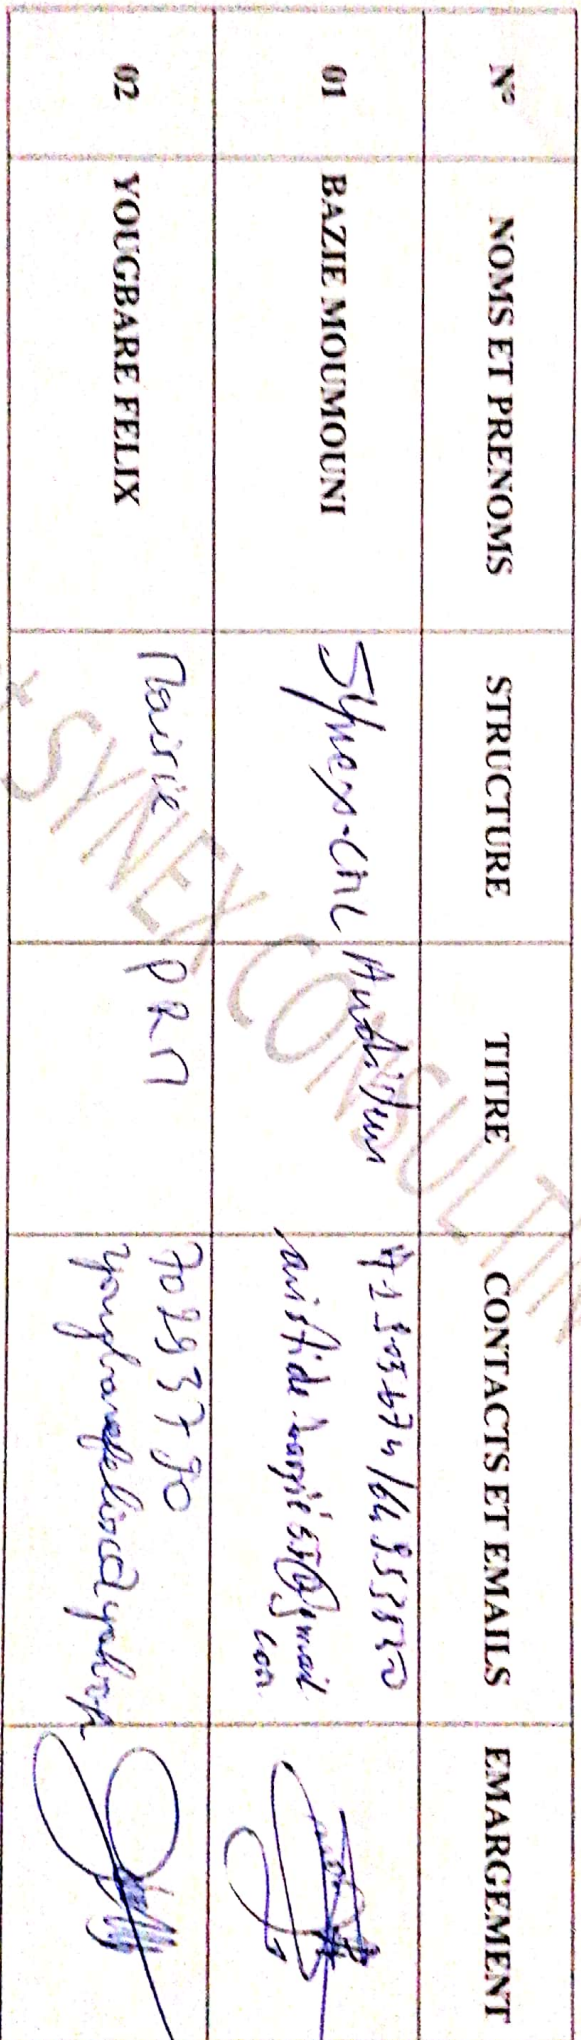 N° NOMS ET PRENOMS STRUCTURE TITRE CONTACTS ET EMAILS EMARGEMENT
01 BAZIE MOUMOUNI Auditeur
@gmail
com
02 YOUGBARE FELIX Mairie PRM 70293790
yougbarefelix@yahoo.fr
SYNEX CONSULTIN